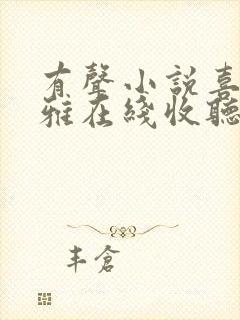 有聲小説喜
雅在綫收聽
丰倉